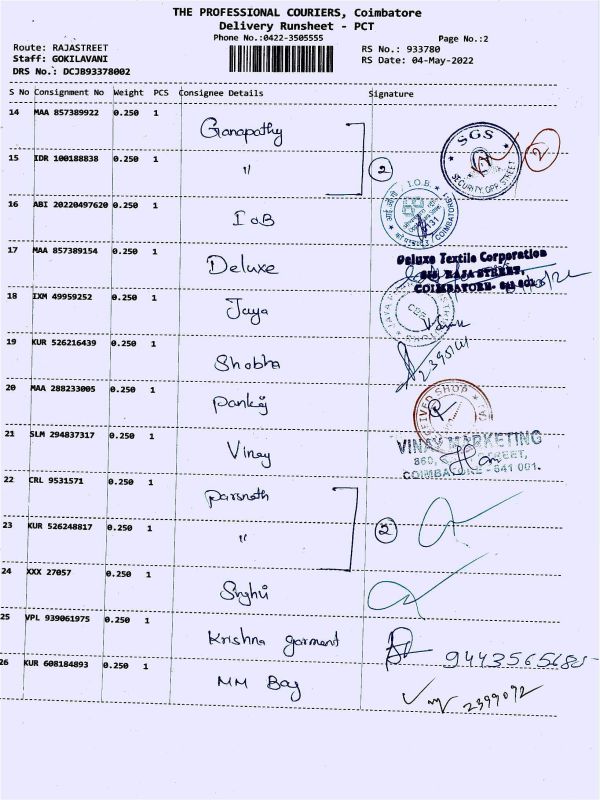 THE PROFESSIONAL COURIERS, Coimbatore
Delivery Runsheet - PCT
Phone No.:0422-3505555
Page No.:2
Route: RAJASTREET
RS No.: 933780
Staff: GOKILAVANI
RS Date: 04-May-2022
DRS No.: DCJB93378002
S No Consignment No Weight PCS Consignee Details Signature
14 MAA 857389922 0.250 1 Ganapathy
SGS
SECURITY, OPP. STREET
2
15 IDR 100188838 0.250 1 "
2
16 ABI 20220497620 0.250 1 IOB
I.O.B.
COIMBATORE
17 MAA 857389154 0.250 1 Deluxe
Deluxe Textile Corporation
RAJA STREET,
COIMBATORE- 641 001
18 IXM 49959252 0.250 1 Jaya
JAYA
CBE
19 KUR 526216439 0.250 1 Shobha
20 MAA 288233005 0.250 1 Pankaj
SHOP
21 SLM 294837317 0.250 1 Vinay
VINAY MARKETING
860, STREET,
COIMBATORE - 641 001.
22 CRL 9531571 0.250 1 Parsnath
23 KUR 526248817 0.250 1 "
2
24 XXX 27057 0.250 1 Singhvi
25 VPL 939061975 0.250 1 Krishna garment
26 KUR 608184893 0.250 1 MM Bag
2399072